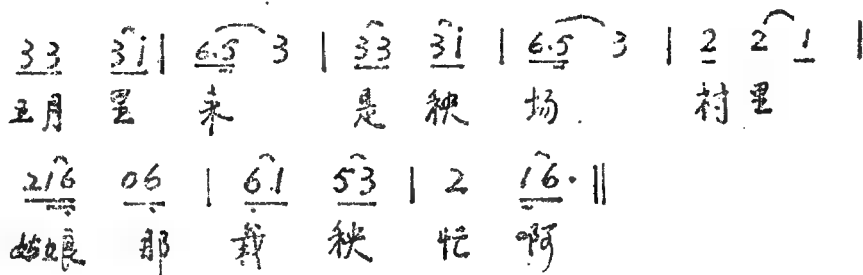 33 31 | 6.5 3 | 33 31 | 6.5 3 | 2 2 1 |
五月 里 来 是 秧 场. 村 里
216 06 | 61 53 | 2 16. ‖
姑娘 那 栽 秧 忙 啊